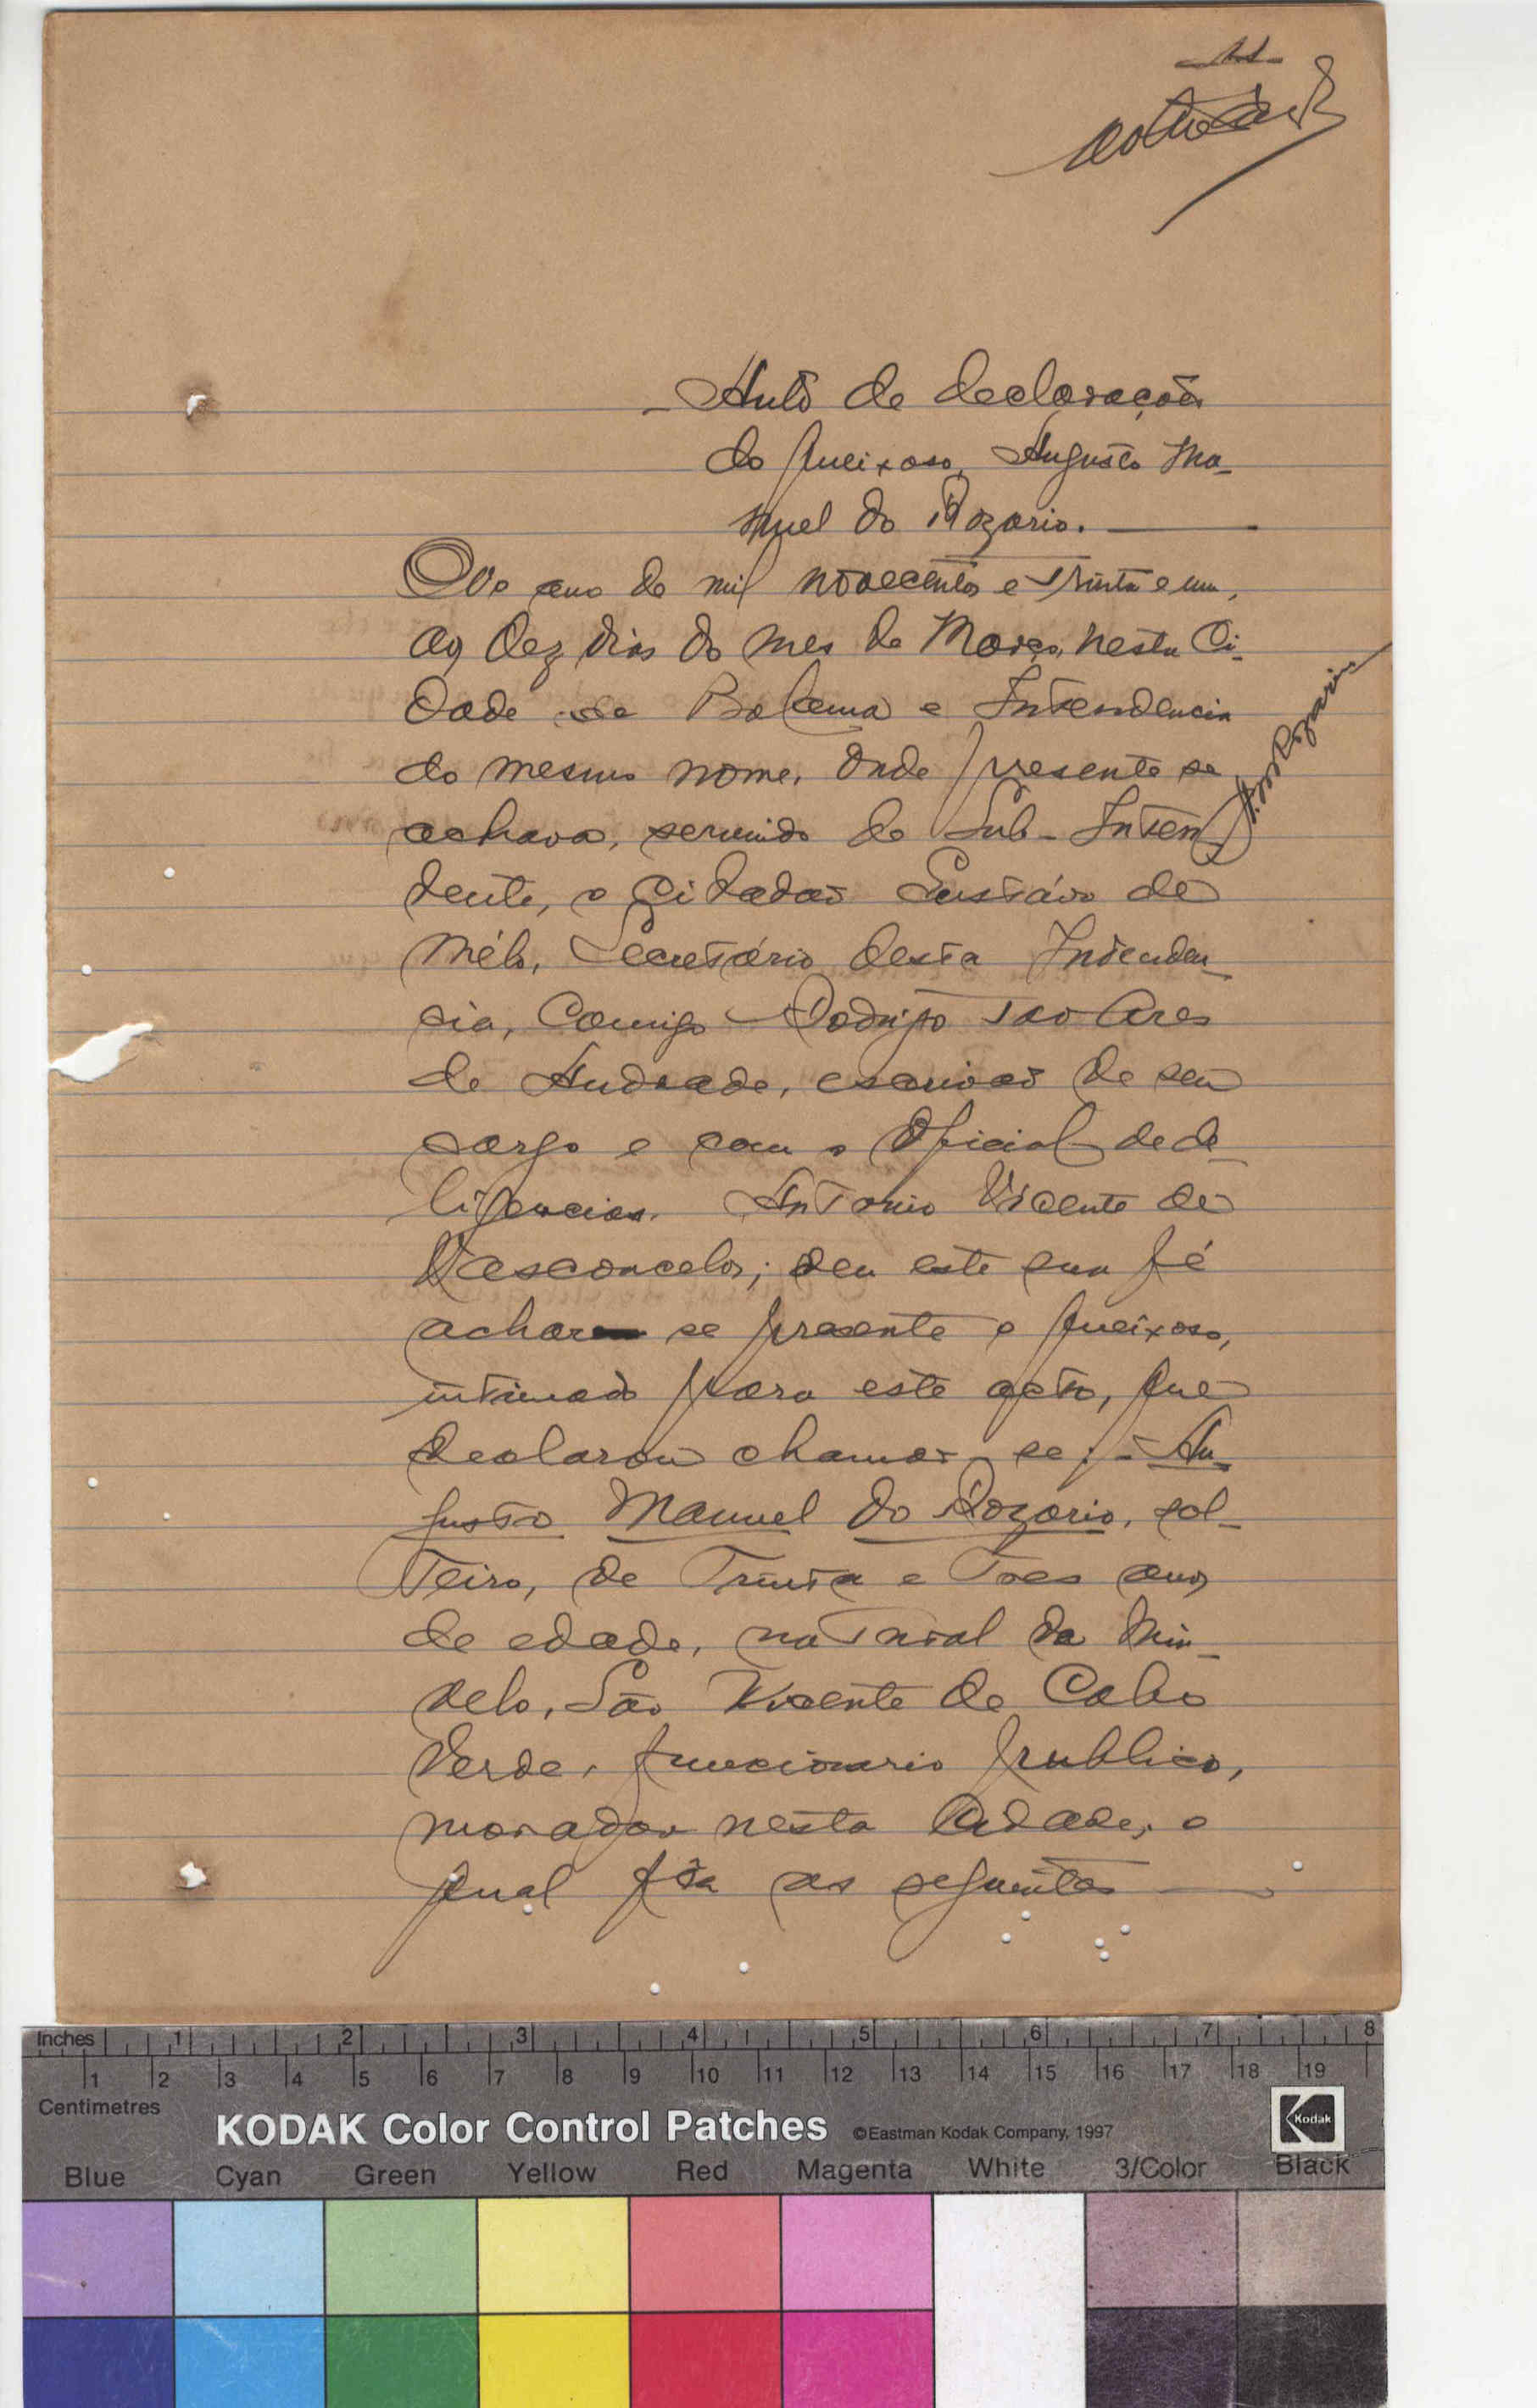 11
- Auto de declaração
do queixoso, Augusto Ma-
nuel do Rozario. ———
No ano de mil novecentos e trinta e um,
aos dez dias do mes de Março, nesta Ci-
dade de Bolama e Intendencia
do mesmo nome, onde presente se
achava, servindo de Sub-Inten-
dente, o cidadão Gustávo de
Mélo, Secretário desta Intenden-
cia, comigo Rodrigo Tavares
de Andrade, escrivão de seu
cargo e com o Oficial de de-
ligencias, Antonio Vicente de
Vasconcelos; deu este sua fé
achar se presente o queixoso,
intimado para este acto, que
declarou chamar-se: - Au-
gusto Manuel do Rozario, sol-
teiro, de trinta e tres anos
de edade, natural da Min-
delo, São Vicente de Cabo
Verde, funcionario publico,
morador nesta Cidade, o
qual fôa as seguintes ———
A. M. Rozario
Inches 1 2 3 4 5 6 7 8
1 2 3 4 5 6 7 8 9 10 11 12 13 14 15 16 17 18 19
Centimetres
KODAK Color Control Patches ©Eastman Kodak Company, 1997 Kodak
Blue Cyan Green Yellow Red Magenta White 3/Color Black